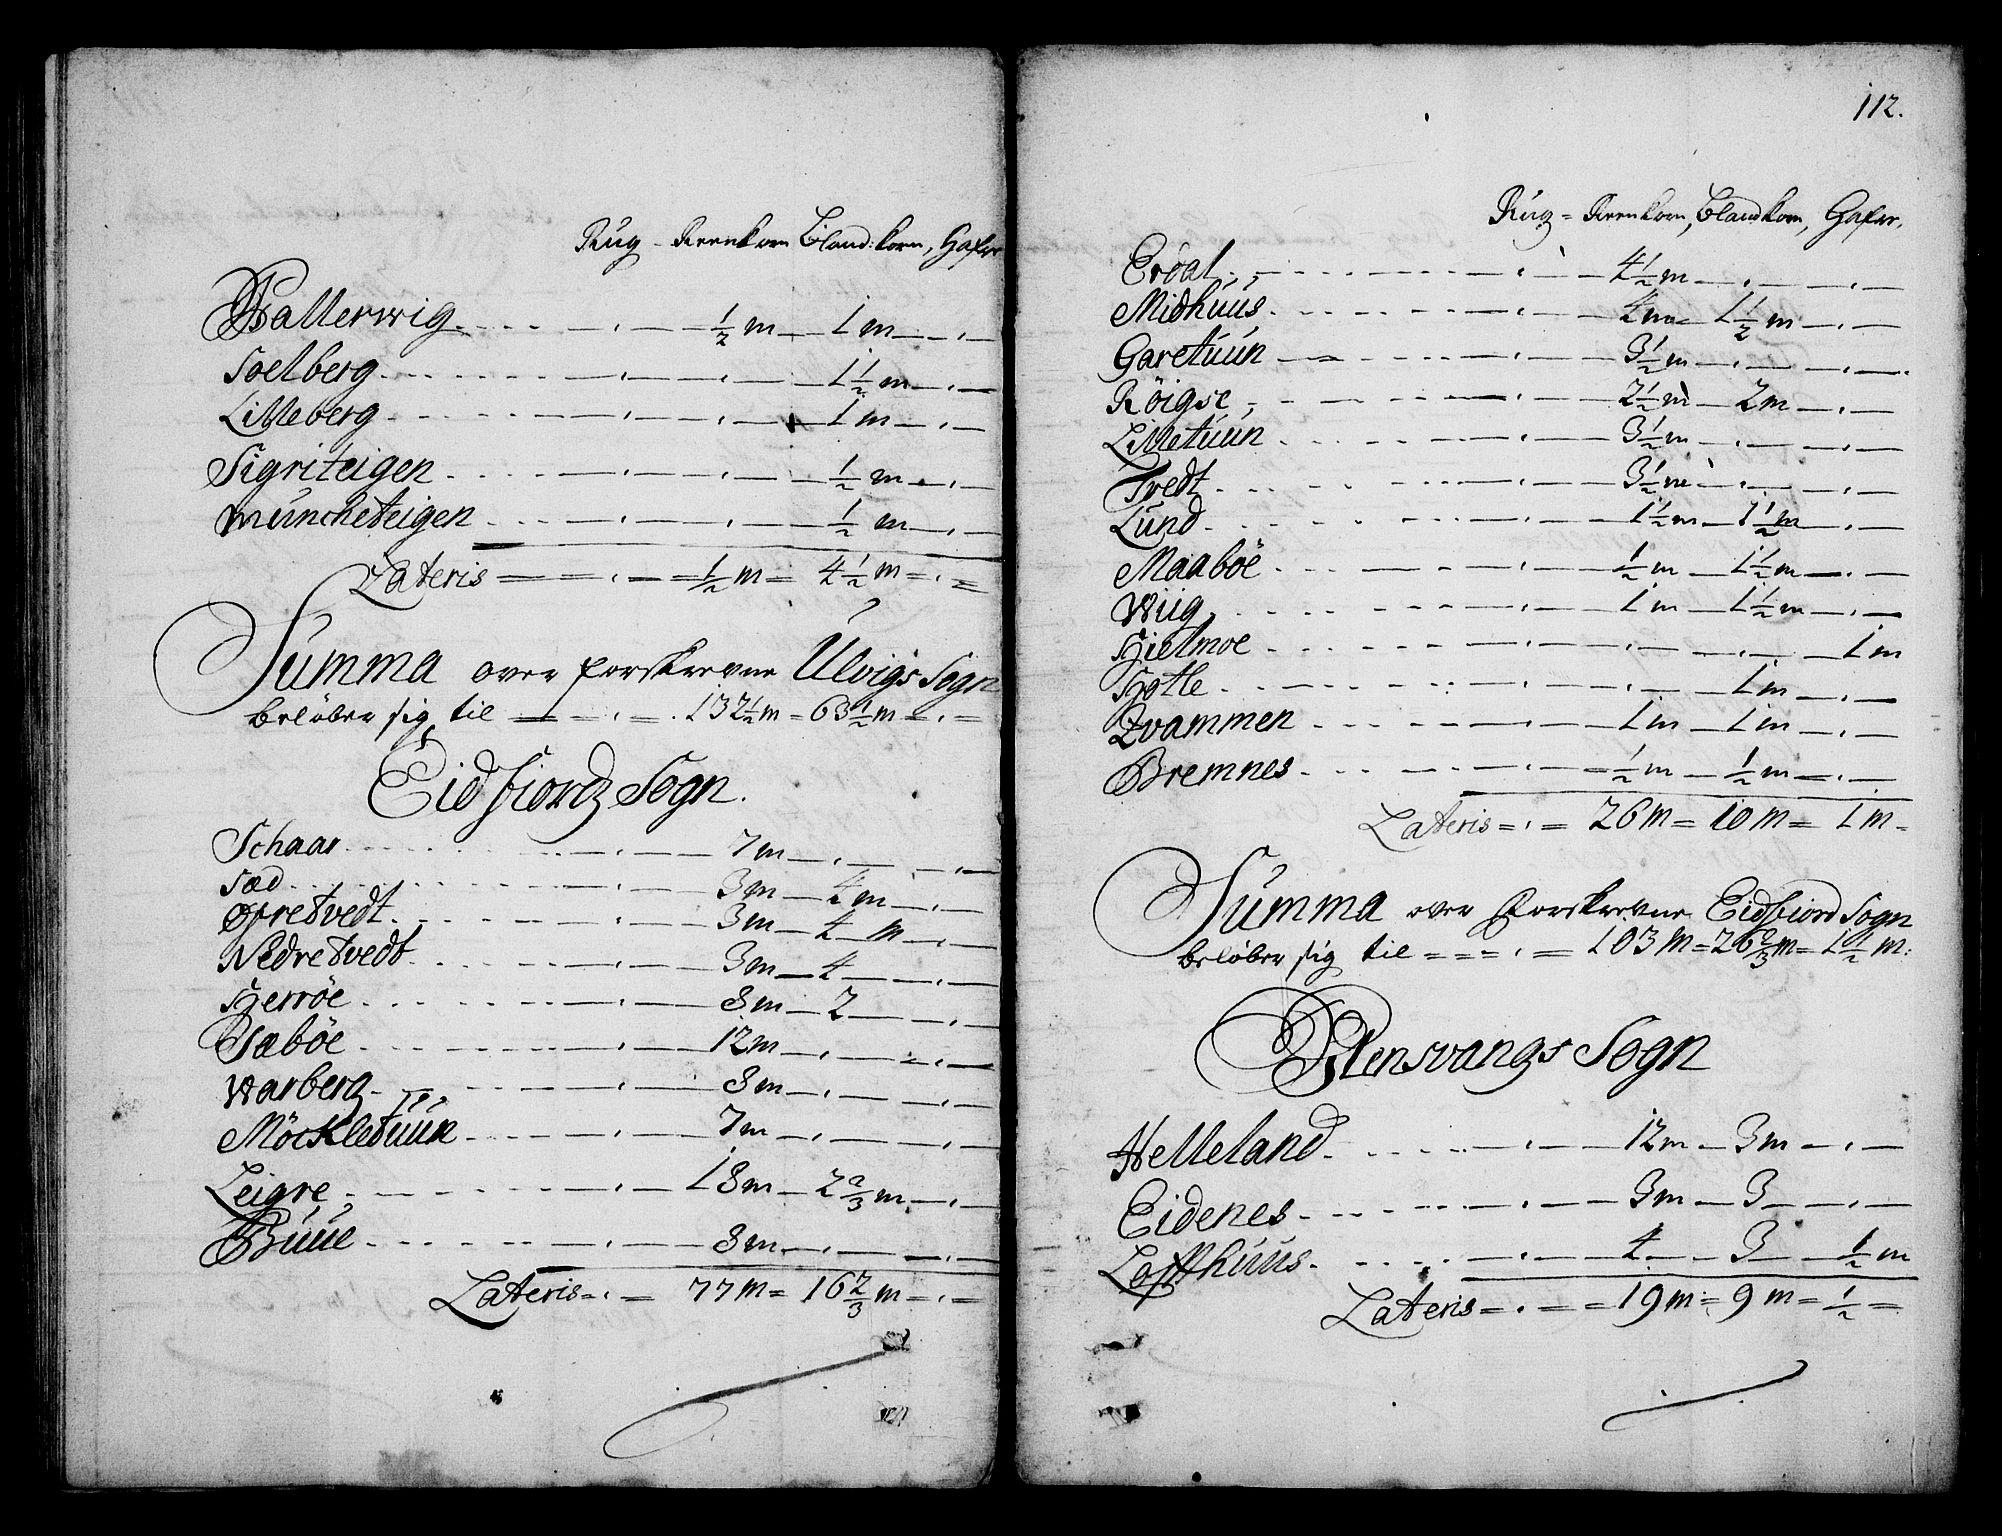 Rug - Reenkorn Bland:korn, Hafre
Hallerwig. - - - - , - 1/2 m - 1 m - , -
Soelberg. - - - - , - , - 1 1/2 m - , -
Lilleberg - - - - , - , - 1 m - , -
Sigriteigen - - - - , - , - 1/2 m - , -
Muncheteigen - - - , - , - 1/2 m - , -
Lateris = = , = 1/2 m = 4 1/2 m = , =
Summa over forskrevne Ulvigs Sogn
beløber sig til = = , = . 132 1/2 m = 63 1/2 m = , =
Eidfiordz Sogn.
Schaar - - - - , - 7 m - , - - , -
Sæd - - - - , - 3 m - 4 m - , -
Øfretvedt. - - - , - 3 m - 4 m - , -
Nedretvedt. - - - , - 3 m - 4 - - , -
Herröe - - - - , - 8 m - 2 - - , -
Sæböe - - - - , - 12 m - , - - , -
Warberg - - - - , - 8 m - , - - , -
Möckletuun - - - , - 7 m - , - - , -
Leigre - - - - , - 18 m - 2 2/3 m - , -
Buue - - - - , - 8 m - , - - , -
Lateris = , = 77 m = 16 2/3 m = , =
112.
Rug = Reenkorn, Blandkorn, Hafre,
Erdal - - - - , - 4 1/2 m - , - - , -
Midhuus - - - - , - 4 m - 1 1/2 m - , -
Garetuun - - - , - 3 1/2 m - , - - , -
Röigse - - - - , - 2 1/2 m - 2 m - , -
Lilletuun - - - , - 3 1/2 m - , - - , -
Tvedt - - - - , - 3 1/2 m - , - - , -
Lund - - - - , - 1 1/2 m - 1 1/2 m - , -
Maaböe - - - - , - 1/2 m - 1 1/2 m - , -
Wiig - - - - , - 1 m - 1 1/2 m - , -
Hielmoe - - - - , - , - , - 1 m
Hotle - - - - , - , - 1 m - , -
Qvammen - - - - , - 1 m - 1 m - , -
Bremnes - - - - , - 1/2 m - 1/2 m - , -
Lateris = , = 26 m = 10 m = 1 m =
Summa over forskrevne Eidfiord Sogn
beløber sig til = = = , = 103 m = 26 2/3 m = 1 1/2 m:
Ullensvangs Sogn
Helleland - - - , - 12 m - 3 m - , -
Eidenes - - - - , - 3 m - 3 - - , -
Loffthuus - - - , - 4 - - 3 - 1/2 m
Lateris = , = = 19 m = 9 m = 1/2 =